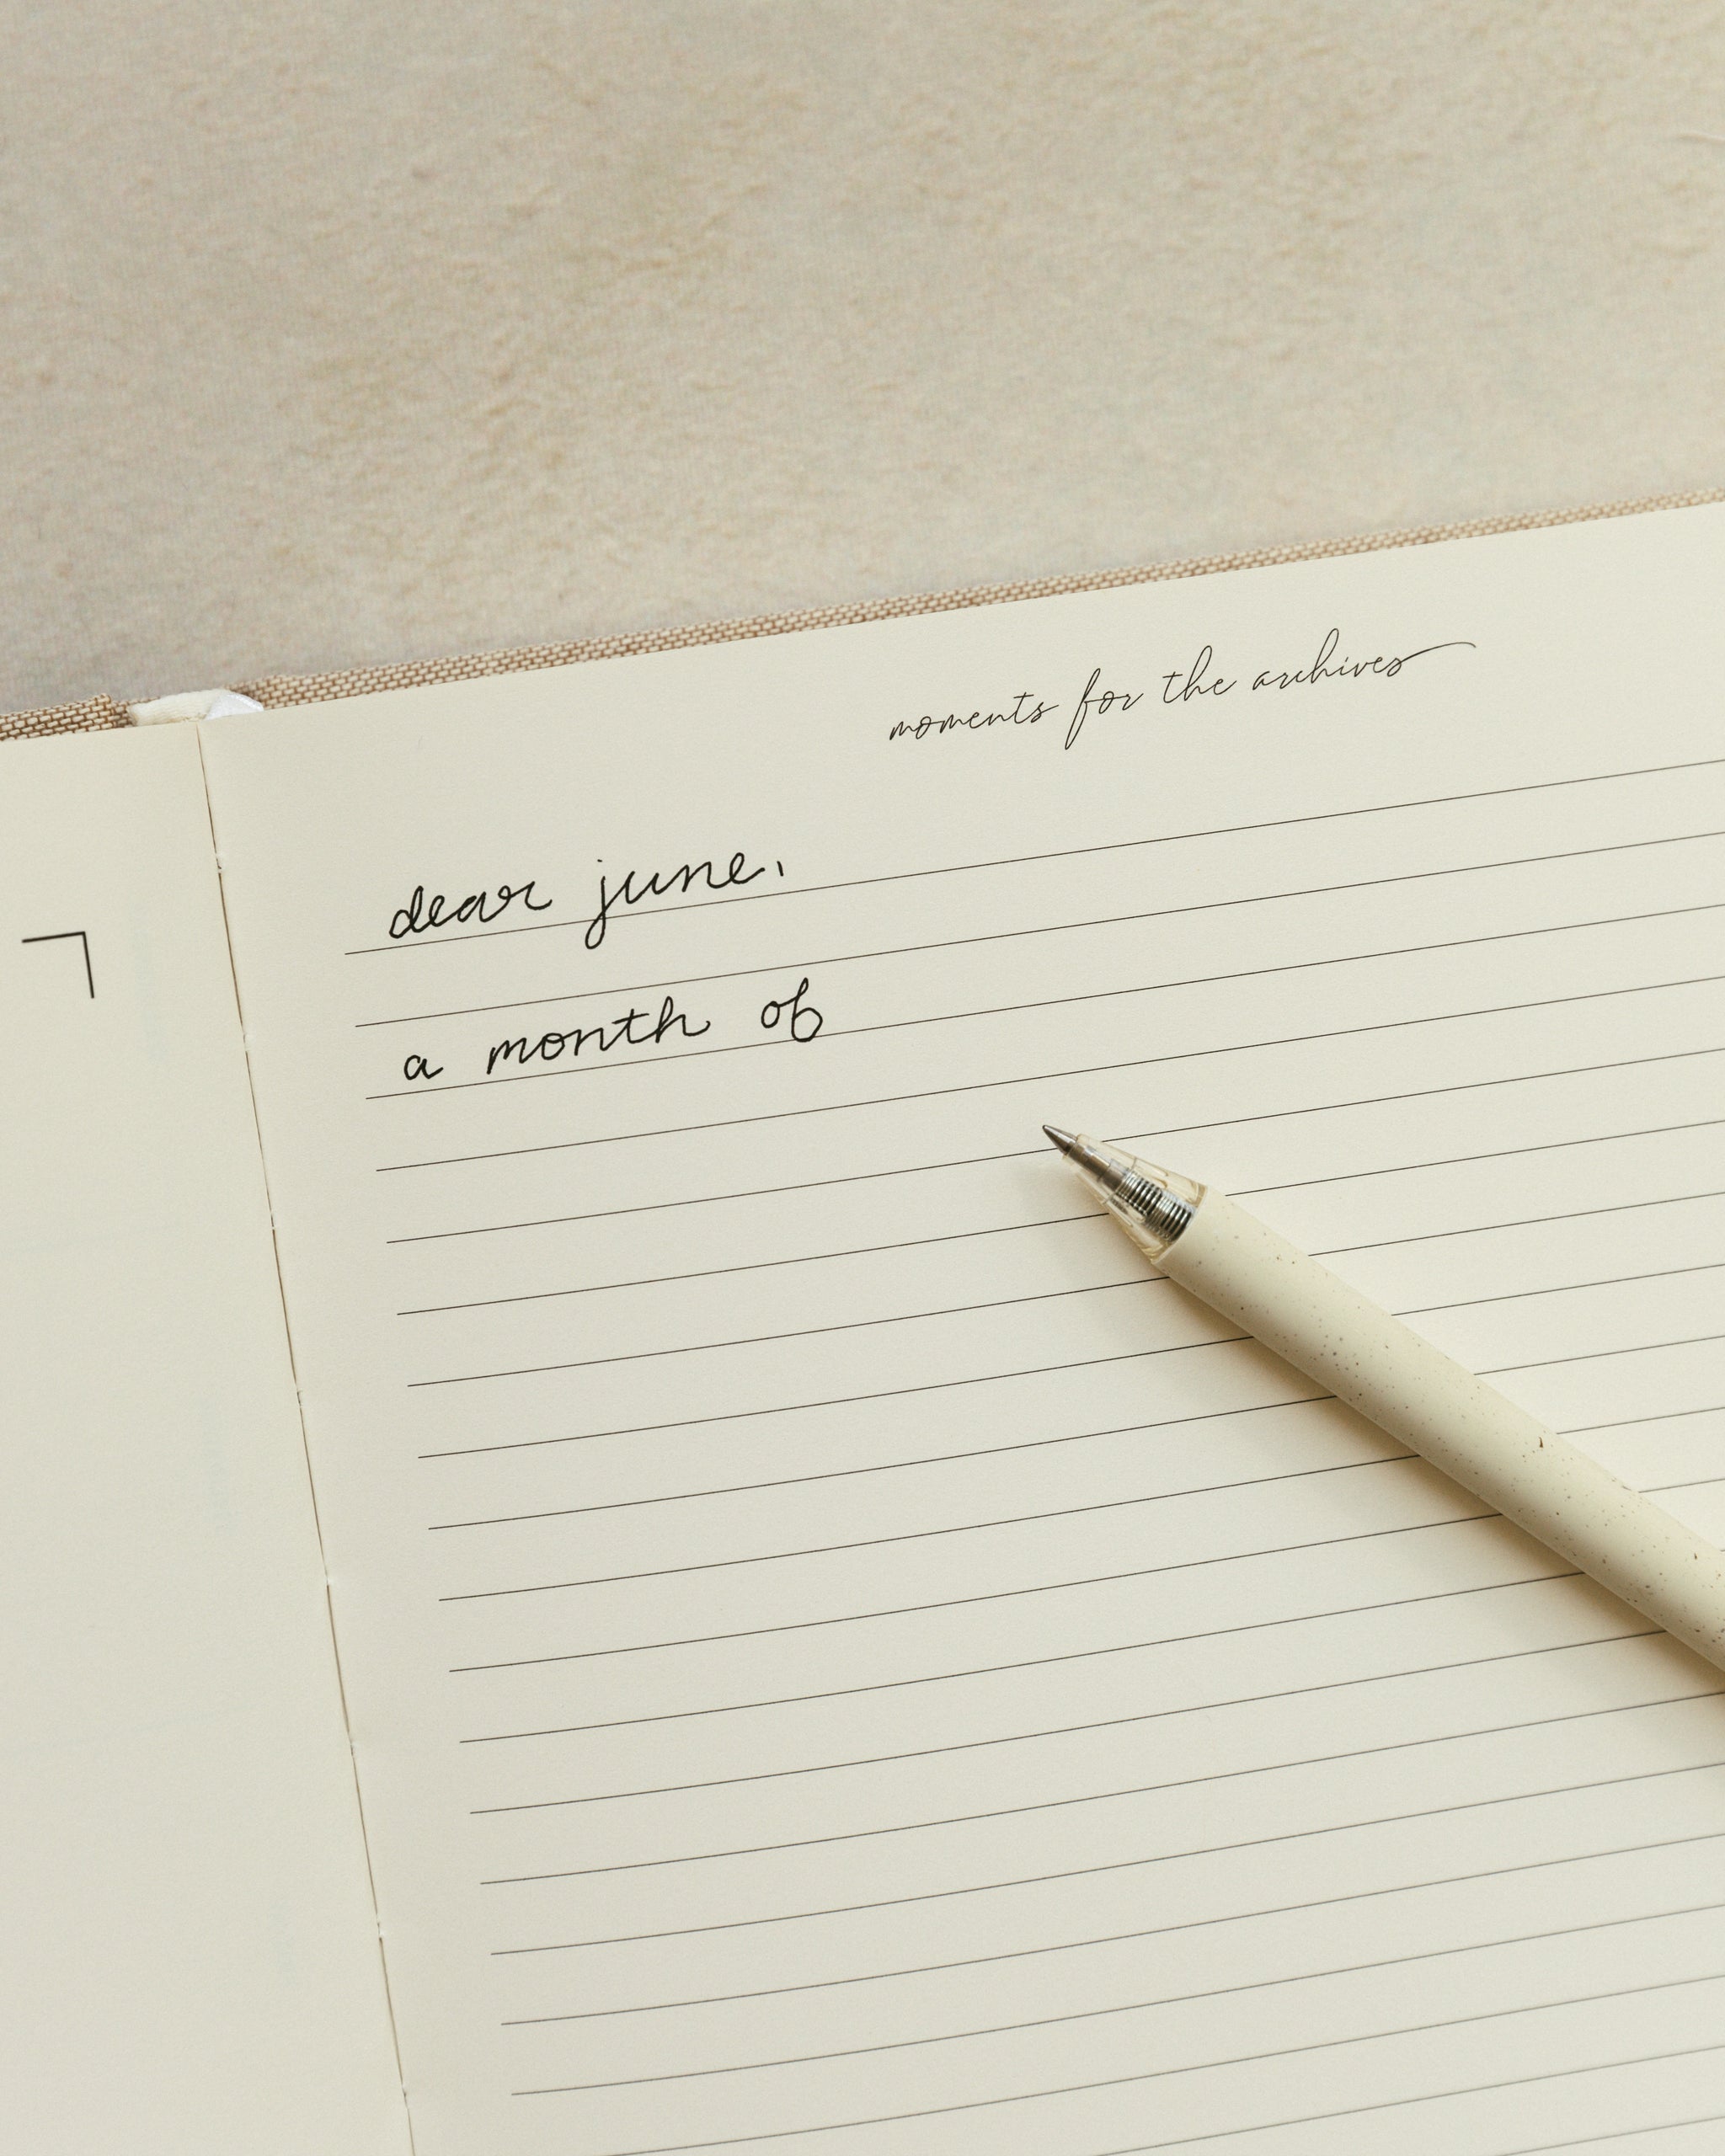 moments for the archives
dear june,
a month of